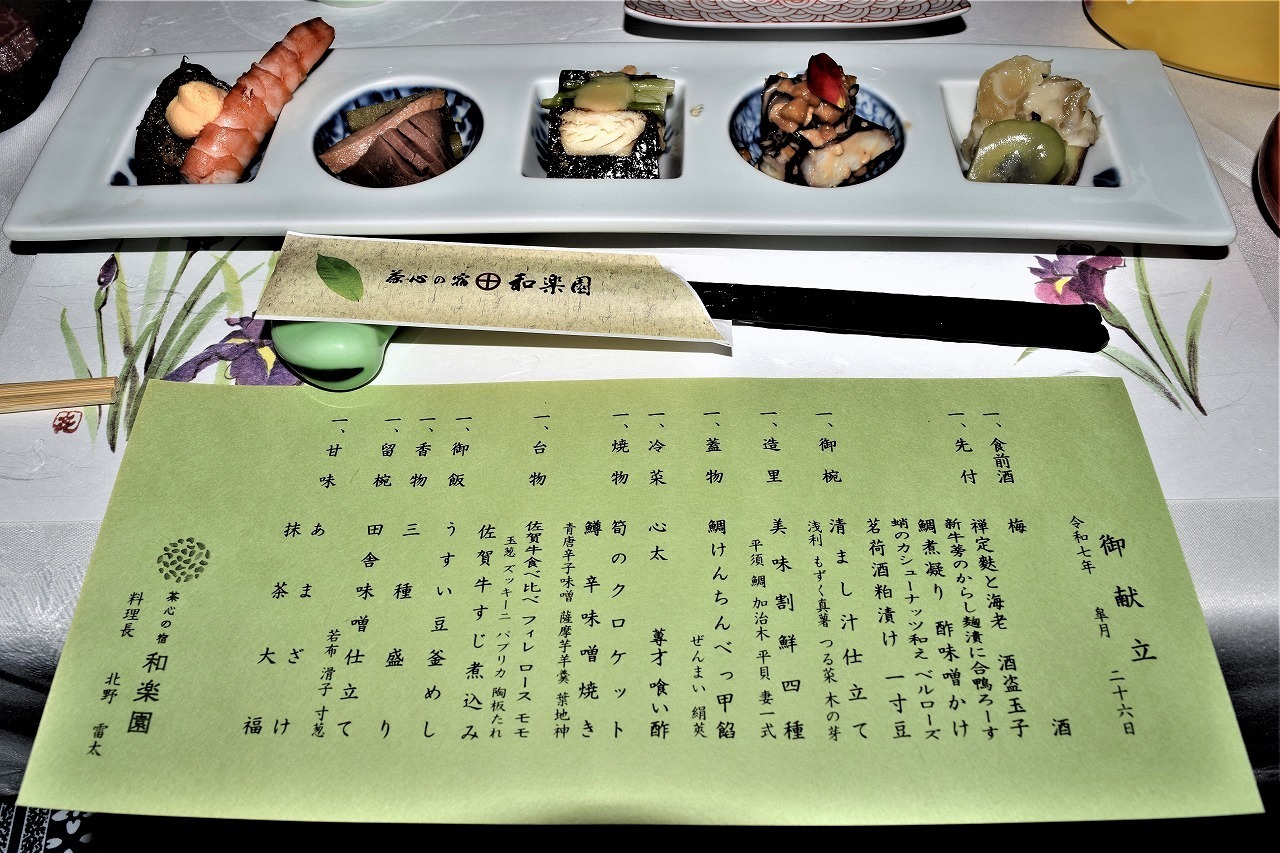 茶心の宿 和楽園
御献立
令和七年 皐月 二十六日
一、食前酒 梅酒
一、先付 禅定麩と海老 酒盗玉子
新牛蒡のからし麹漬に合鴨ろーす
鯛煮凝り 酢味噌かけ
蛸のカシューナッツ和え ベルローズ
茗荷酒粕漬け 一寸豆
一、御椀 清まし汁仕立て
浅利 もずく真薯 つる菜 木の芽
一、造里 美味割鮮四種
平須 鯛 加治木 平貝 妻一式
一、蓋物 鯛けんちんべっ甲餡
ぜんまい 絹莢
一、冷菜 心太 蓴才喰い酢
一、焼物 筍のクロケット
鱒辛味噌焼き
青唐辛子味噌 薩摩芋羊羹 葉地神
一、台物 佐賀牛食べ比べ フィレ ロース モモ
玉葱 ズッキーニ パプリカ 陶板たれ
佐賀牛すじ煮込み
一、御飯 うすい豆釜めし
一、香物 三種盛り
一、留椀 田舎味噌仕立て
若布 滑子 寸葱
一、甘味 あまざけ
抹茶大福
茶心の宿 和楽園
料理長 北野 雷太